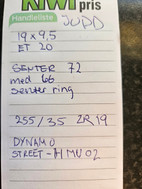 KIWI
pris
Handleliste JUDD
19 x 9,5
ET 20
SENTER 72
med 66
senter ring
255/35 ZR19
DYNAMO
STREET-H MU02